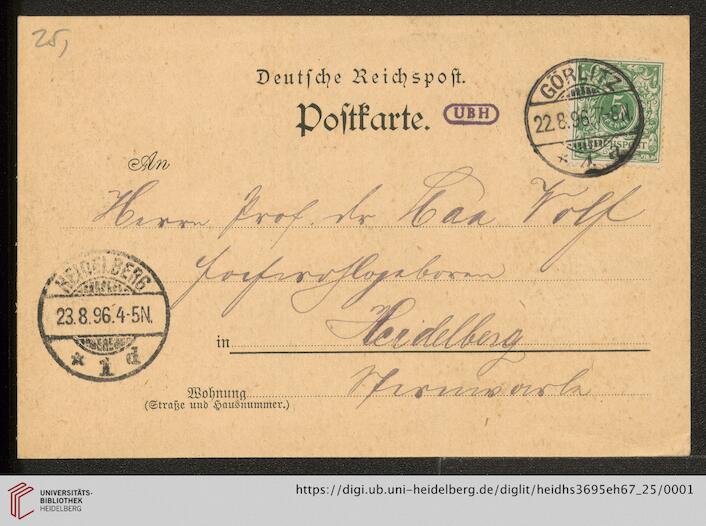 25,
Deutsche Reichspost.
Postkarte. UBH
GÖRLITZ
22.8.96.7-8N.
* 1 d
5
REICHSPOST
An
Herrn Prof. Dr Max Wolf
Hochwohlgeboren
HEIDELBERG
23.8.96.4-5N.
* 1 d
in Heidelberg
Wohnung Sternwarte
(Straße und Hausnummer.)
UNIVERSITÄTS-
BIBLIOTHEK
HEIDELBERG
https://digi.ub.uni-heidelberg.de/diglit/heidhs3695eh67_25/0001